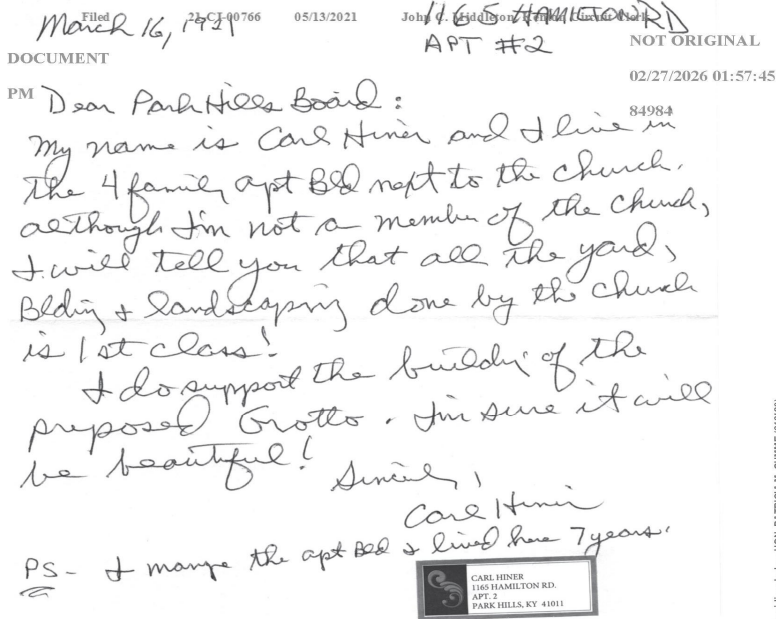 Filed 21-CI-00766 05/13/2021 John C. Middleton, Kenton Circuit Clerk
March 16, 1921
1165 HAMILTON RD
APT #2
NOT ORIGINAL
DOCUMENT
02/27/2026 01:57:45
PM
84984
Dear Park Hills Board:
My name is Carl Hiner and I live in
the 4 family apt Bld next to the church.
although I'm not a member of the church,
I will tell you that all the yard,
Blding & landscaping done by the church
is 1st class!
I do support the buildin of the
preposed Grotto. I'm sure it will
be beautiful!
Sincerely,
Carl Hiner
PS- I manage the apt Bld & lived here 7 years.
CARL HINER
1165 HAMILTON RD.
APT. 2
PARK HILLS, KY 41011